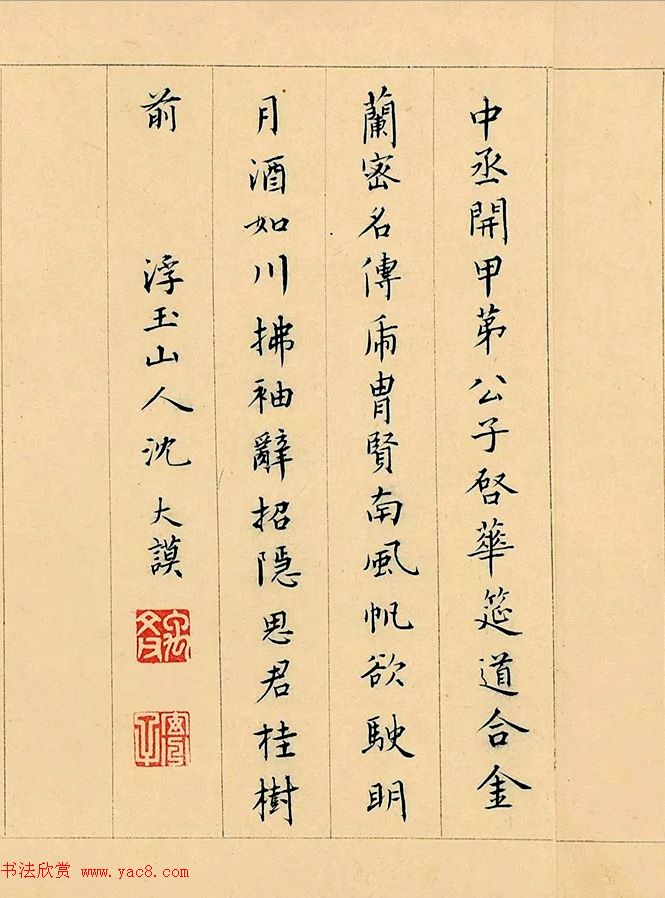 中丞開甲第公子啓華筵道合金
蘭密名傳胄賢南風帆欲駛明
月酒如川拂袖辭招隱思君桂樹
前
浮玉山人沈大謨
书法欣赏 www.yac8.com